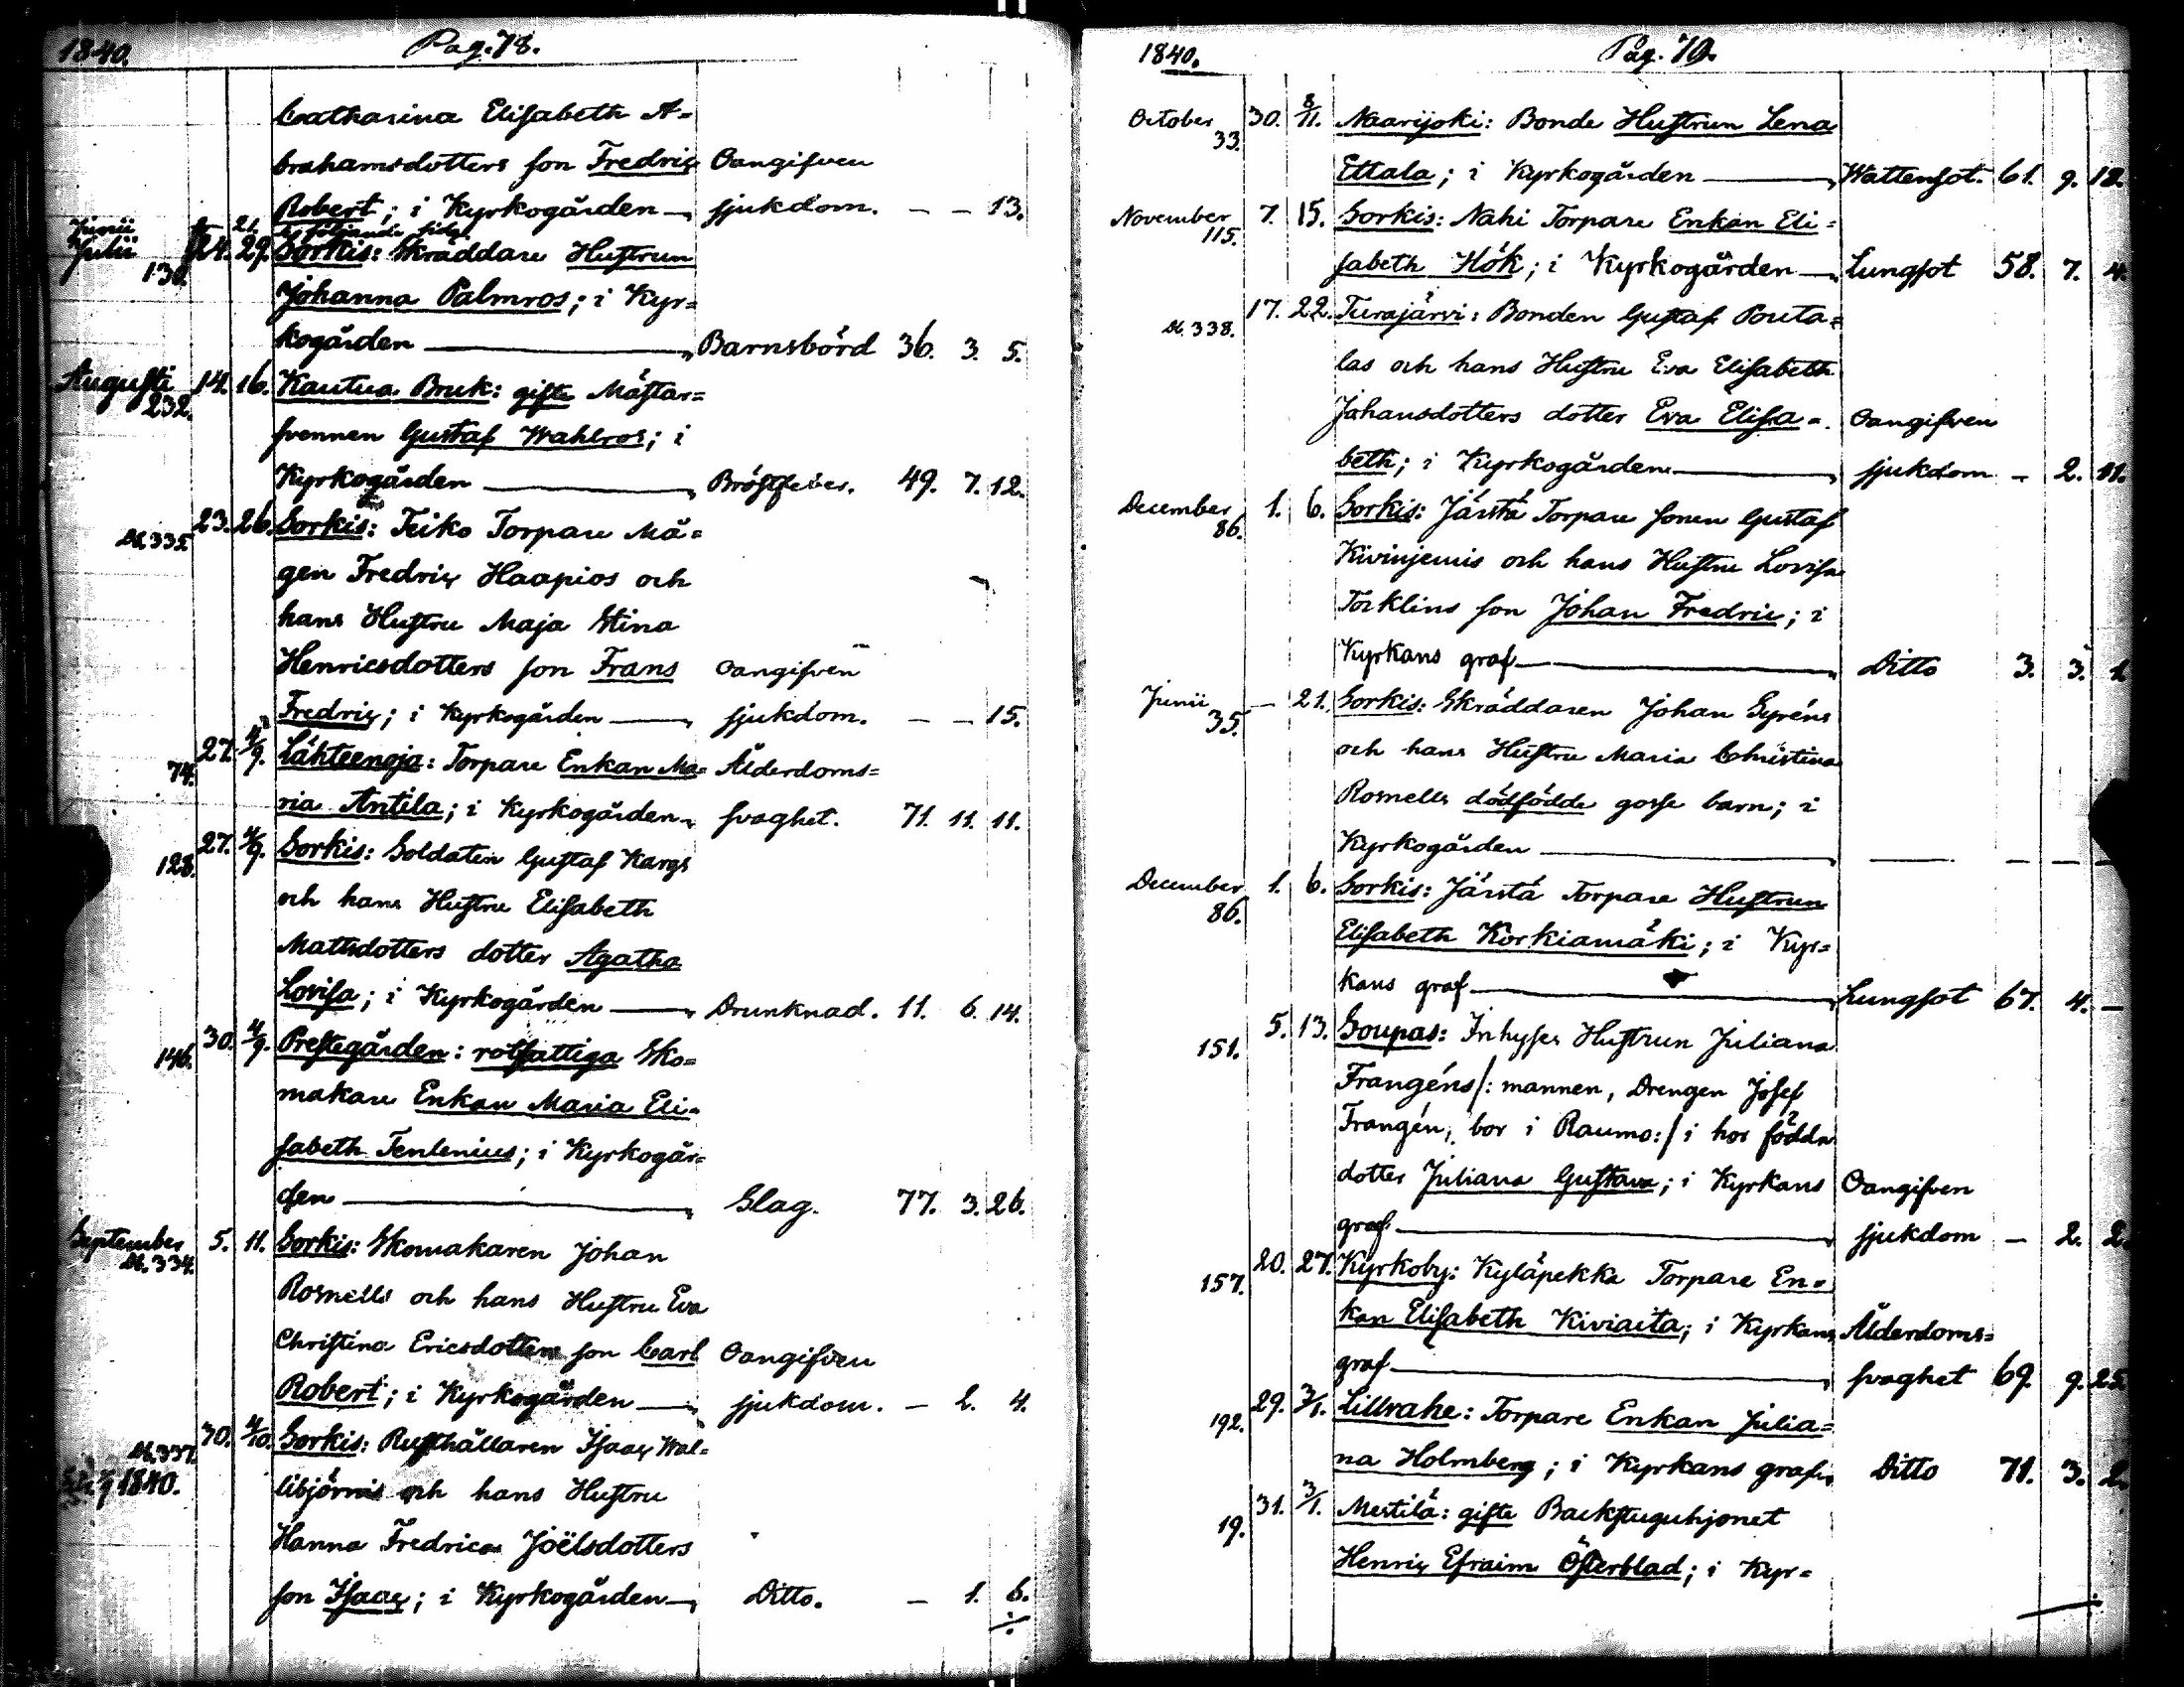 1840. Pag. 78.
Catharina Elisabeth A=
brahamsdotters son Fredric Oangifven
Robert; i Kyrkogården — sjukdom. — — 13.
Junii 21. följande sida
Julii 24. 29. Sorkis: Skräddare Hustrun
130. Johanna Palmros; i Kyr=
kogården — Barnsbörd 36. 3. 5.
Augusti 14. 16. Kautua Bruk: gifte Mästar=
232. svennen Gustaf Wahlros; i
Kyrkogården — Bröstfeber. 49. 7. 12.
23. 26. Sorkis: Teiko Torpare Må=
M. 335. gen Fredric Haapios och
hans Hustru Maja Stina
Henricsdotters son Frans Oangifven
Fredric; i Kyrkogården — sjukdom. — — 15.
27. 4/9. Lähteenoja: Torpare Enkan Ma= Ålderdoms=
74. ria Antila; i Kyrkogården — svaghet. 71. 11. 11.
27. 4/9. Sorkis: Soldaten Gustaf Kargs
128. och hans Hustru Elisabeth
Mattsdotters dotter Agatha
Lovisa; i Kyrkogården — Drunknad. 11. 6. 14.
30. 4/9. Prestegården: rotfattiga Sko=
146. makare Enkan Maria Eli=
sabeth Tenlenius; i Kyrkogår=
den — Slag. 77. 3. 26.
September 5. 11. Sorkis: Skomakaren Johan
M. 334. Rosnells och hans Hustru Eva
Christina Ericsdotters son Carl Oangifven
Robert; i Kyrkogården — sjukdom. — 2. 4.
30. 4/10. Sorkis: Rusthållaren Isaac Wal=
M. 337. 1840. libjörnis och hans Hustru
Hanna Fredrica Joëlsdotters
son Isaac; i Kyrkogården — Ditto. — 1. 6.
1840. Pag. 79.
October 30. 8/11. Naarijoki: Bonde Hustrun Lena
33. Ettala; i Kyrkogården — Wattensot. 61. 9. 12.
November 7. 15. Sorkis: Nahi Torpare Enkan Eli=
115. sabeth Hök; i Kyrkogården — Lungsot 58. 7. 4.
17. 22. Turajärvi: Bonden Gustaf Pouta=
M. 338. las och hans Hustru Eva Elisabeth
Johansdotters dotter Eva Elisa= Oangifven
beth; i Kyrkogården — sjukdom — 2. 11.
December 1. 6. Sorkis: Järstä Torpare sonen Gustaf
86. Kiviniemis och hans Hustru Lovisa
Torklins son Johan Fredric; i
Kyrkans graf — Ditto 3. 3. 1.
Junii — 21. Sorkis: Skräddaren Johan Syréns
35. och hans Hustru Maria Christina
Rosnells dödfödde gosse barn; i
Kyrkogården — — — —
December 1. 6. Sorkis: Järstä Torpare Hustrun
86. Elisabeth Korkiamäki; i Kyr=
kans graf — Lungsot 67. 4. —
5. 13. Soupas: Inhyses Hustrun Juliana
151. Frangéns /: mannen, Drengen Josef
Frangén, bor i Raumo :/ i hor födda
dotter Juliana Gustava; i Kyrkans Oangifven
graf — sjukdom — 2. 2.
20. 27. Kyrkoby: Kyläpekka Torpare En=
157. kan Elisabeth Kiviaita; i Kyrkans Ålderdoms=
graf — svaghet 69. 9. 25.
29. 3/1. Lillrahe: Torpare Enkan Julia=
192. na Holmberg; i Kyrkans graf — Ditto 71. 3. 2.
31. 3/1. Mestilä: gifte Backstuguhjonet
19. Henric Efraim Österblad; i Kyr=